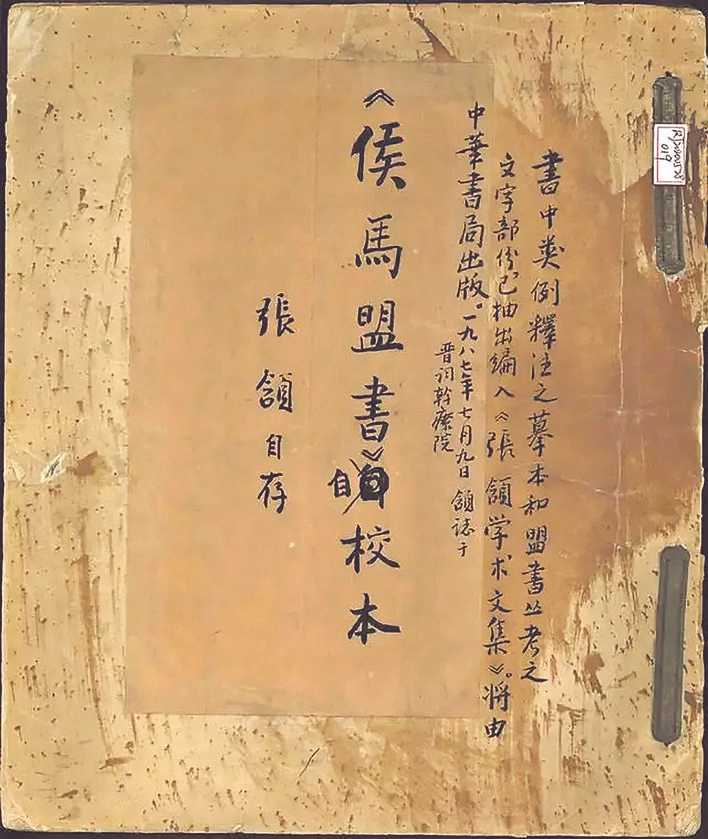 019
書中类例釋注之摹本和盟書丛考之
文字部份已抽出編入《張頷学术文集》。将由
中華書局出版。一九八七年七月九日 頷誌于
晋祠幹療院
《侯馬盟書》自校本
張頷自存